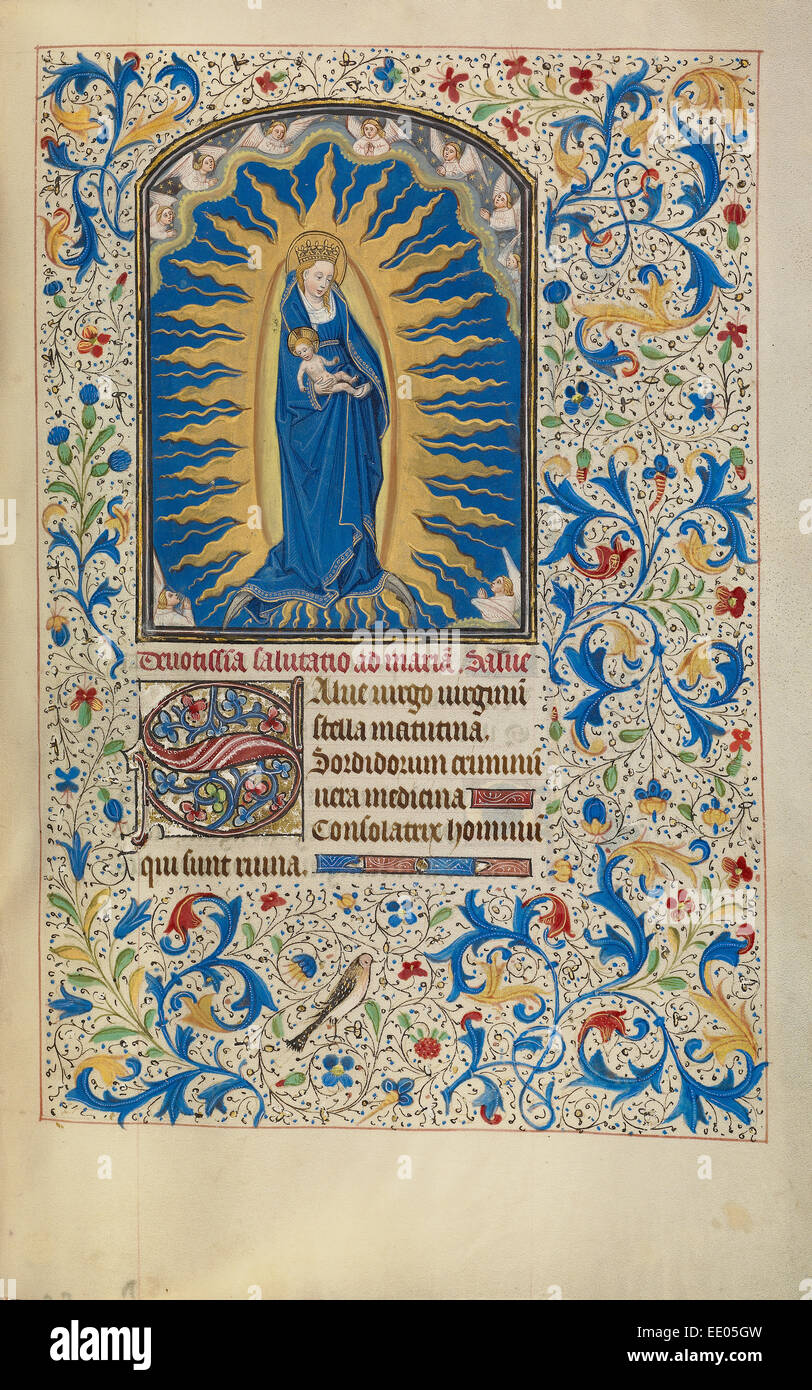 Deuotissīa salutatio ad mariā. Salue
Salue uirgo uirginū
stella matutinā.
Sordidorum criminū
uera medicina
Consolatrix hominū
qui sunt ruina.
alamy stock photo
alamy
Image ID: EE05GW
www.alamy.com